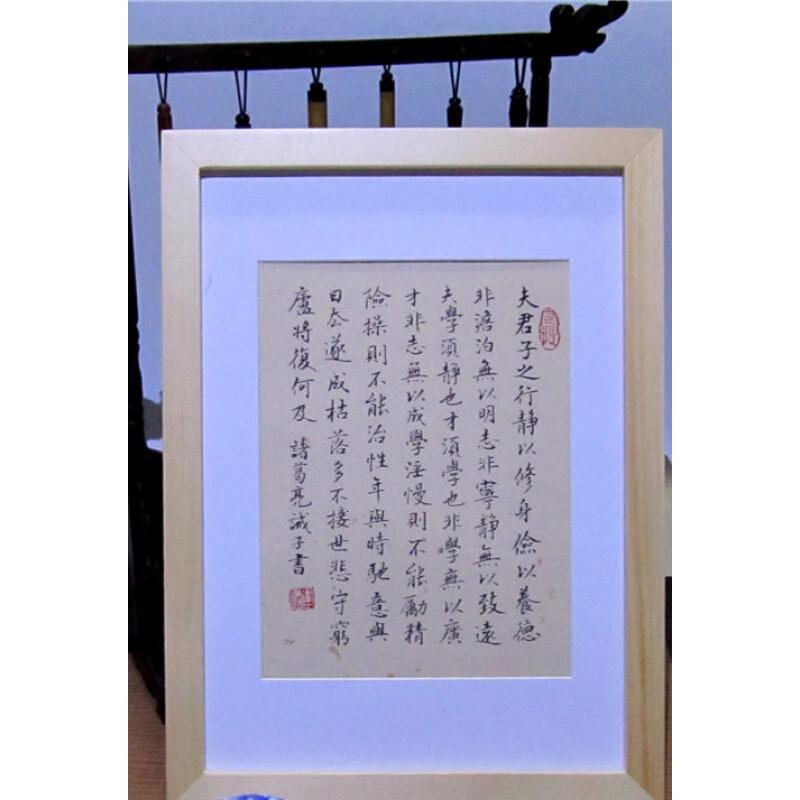 夫君子之行静以修身儉以養德
非澹泊無以明志非寧静無以致遠
夫學須静也才須學也非學無以廣
才非志無以成學淫慢則不能勵精
險操則不能治性年與時馳意與
日去遂成枯落多不接世悲守窮
廬將復何及 諸葛亮誡子書